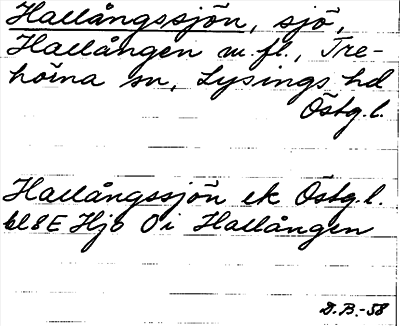 Hallångssjön, sjö,
Hallången m.fl., Tre-
hörna sn, Lysings hd
Östg.l.
Hallångssjön ek Östg.l.
bl 8E Hjo 0i Hallången
D.B.-58